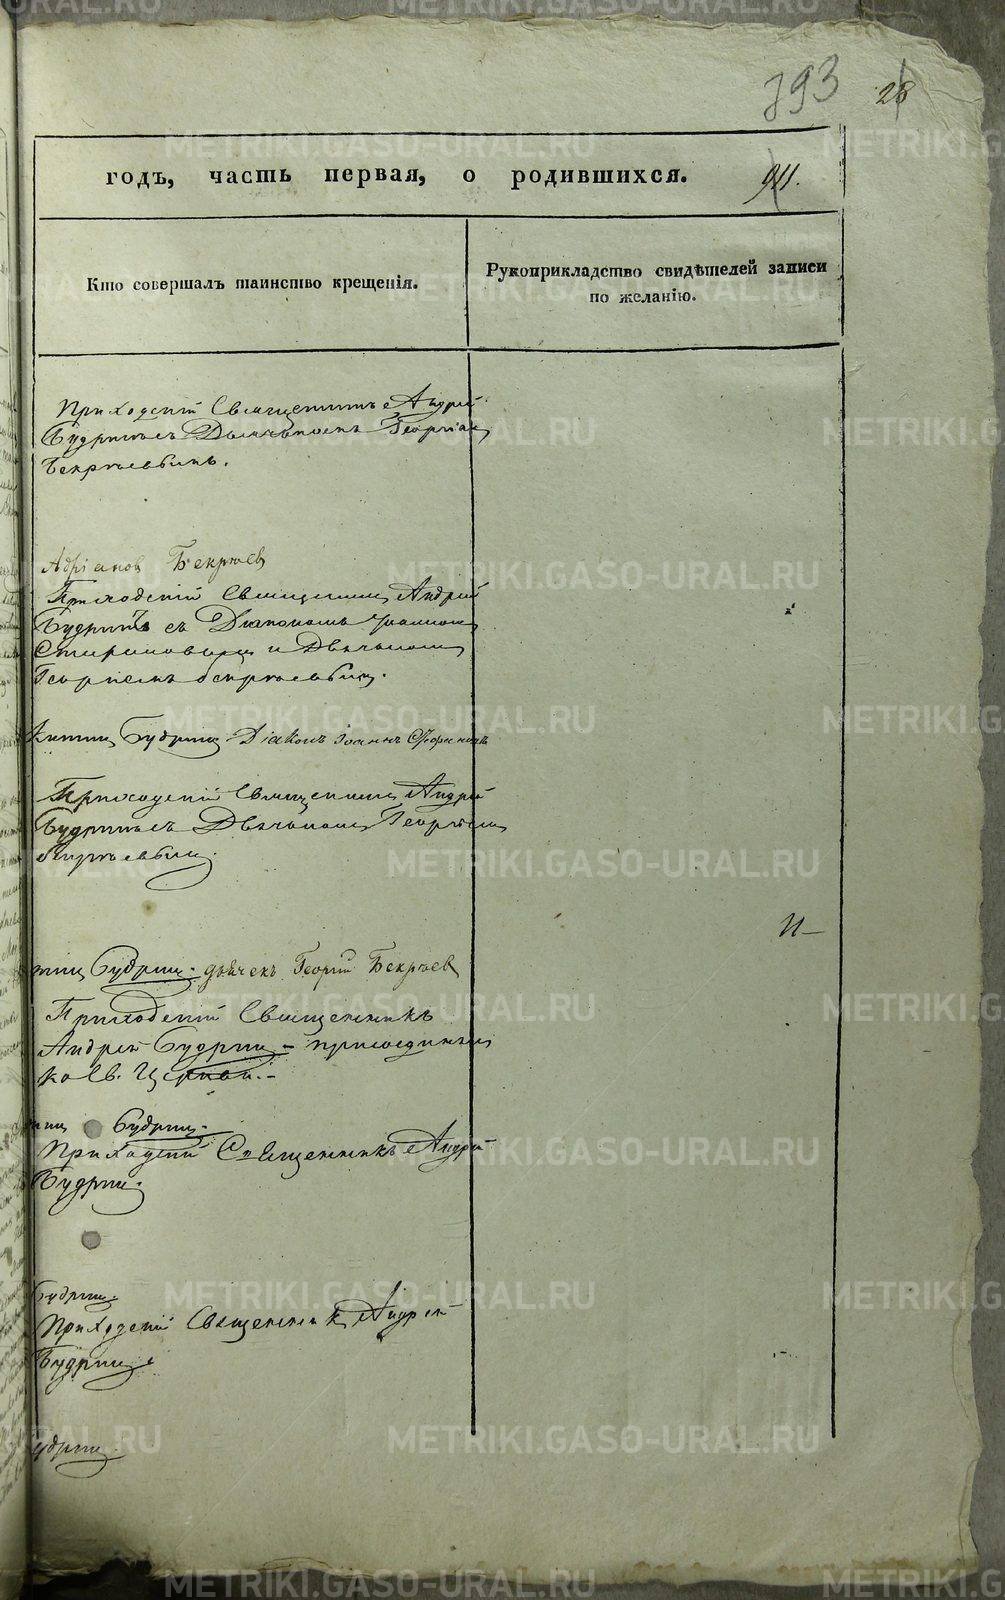 METRIKI.GASO-URAL.RU
393 28
годъ, часть первая, о родившихся. 911.
Кто совершалъ таинство крещенія.
Рукоприкладство свидѣтелей записи
по желанію.
Приходскій Священникъ Андрей
Будринъ съ Дьячкомъ Георгіем
Бекряевымъ.
Бекряев
Приходскій Священник Андрей
Будринъ съ Діакономъ Іоанном
и Дьячком
Георгіемъ Бекряевым.
Будрин Діаконъ Іоаннъ
Приходскій Священник Андрей
Будринъ съ Дьячком Георгіем
Бекряевым
Будрин. дьячекъ Георгій Бекряев
Приходскій Священникъ
Андрей Будрин – присоединены
ко Св. Церкви. –
Будрин.
Приходскій Священникъ Андрей
Будрин.
Будрин.
Приходскій Священник Андрей
Будрин
удрин.